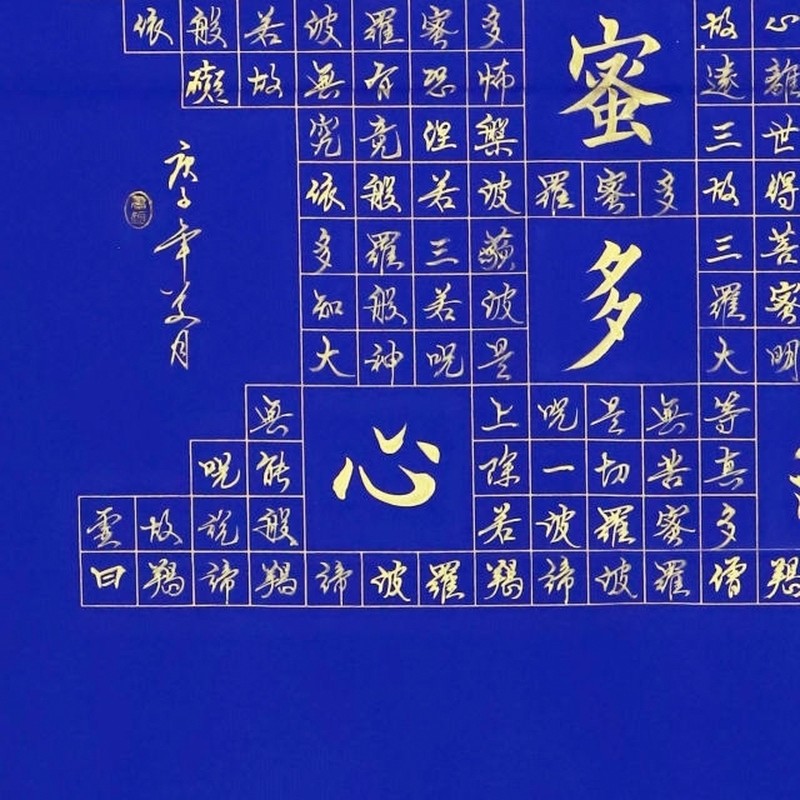 依般若波羅蜜多故心
礙故無有恐怖遠離
蜜
究竟涅槃三世
依般若波羅蜜多故得
多羅三藐三菩
多
知般若波羅蜜
大神呪是大明
無上呪是無等
心
呪能除一切苦真
虛故說般若波羅蜜多
曰羯諦羯諦波羅羯諦波羅僧羯
庚子年月